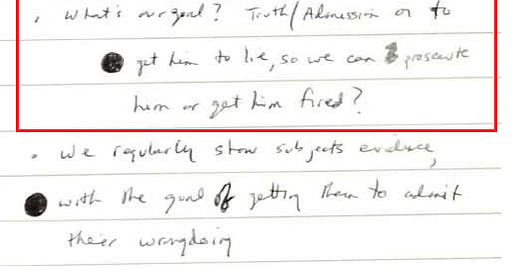 • What's our goal? Truth/Admission or to
get him to lie, so we can prosecute
him or get him fired?
• We regularly show subjects evidence,
with the goal of getting them to admit
their wrongdoing